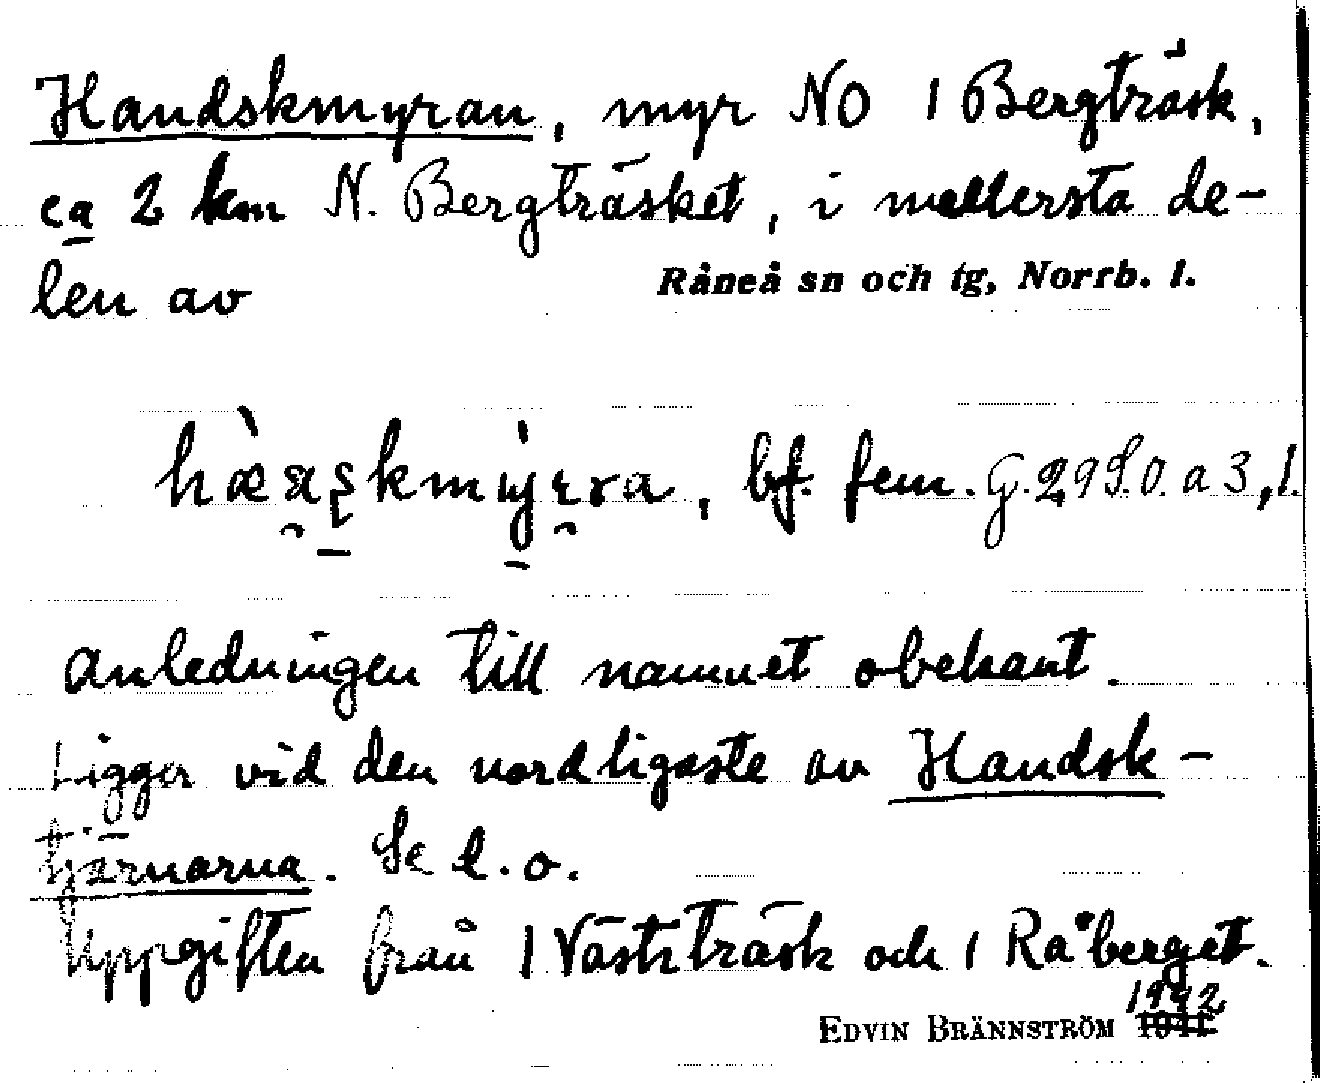 Handskmyran, myr NO 1 Bergträsk,
ca 2 km N. Bergträsket, i mellersta de-
len av Råneå sn och tg, Norrb. l.
bf. fem. G. 29 S.O. a 3, 1.
Anledningen till namnet obekant.
Ligger vid den nordligaste av Handsk-
tjärnarna. Se d. o.
Uppgiften från 1 Västiträsk och 1 Råberget.
1942
EDVIN BRÄNNSTRÖM 1941.